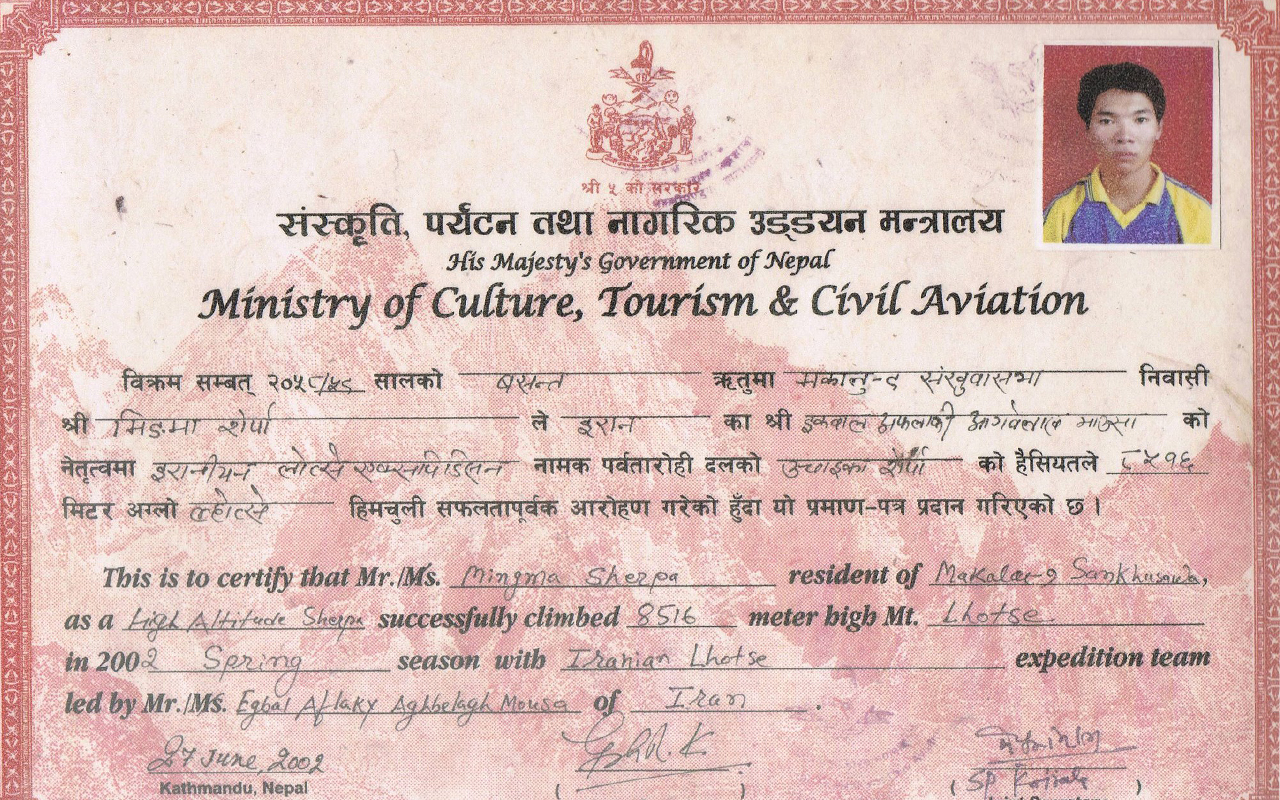 श्री ५ को सरकार
संस्कृति, पर्यटन तथा नागरिक उड्डयन मन्त्रालय
His Majesty's Government of Nepal
Ministry of Culture, Tourism & Civil Aviation
विक्रम सम्बत् २०५८/५९ सालको बसन्त ऋतुमा मकालु-९ संखुवासभा निवासी
श्री मिङमा शेर्पा ले इरान का श्री इकबाल अफलाकी को
नेतृत्वमा इरानीयन ल्होत्से एक्सपिडिसन नामक पर्वतारोही दलको उचाइका शेर्पा को हैसियतले ८५१६
मिटर अग्लो ल्होत्से हिमचुली सफलतापूर्वक आरोहण गरेको हुँदा यो प्रमाण-पत्र प्रदान गरिएको छ।
This is to certify that Mr./Ms. Mingma Sherpa resident of Makalu-9 Sankhusawa,
as a High Altitude Sherpa successfully climbed 8516 meter high Mt. Lhotse
in 2002 Spring season with Iranian Lhotse expedition team
led by Mr./Ms. Egbal Aflaky Aghbelagh Mousa of Iran.
27 June, 2002
Kathmandu, Nepal
( )
( SP Koirala )